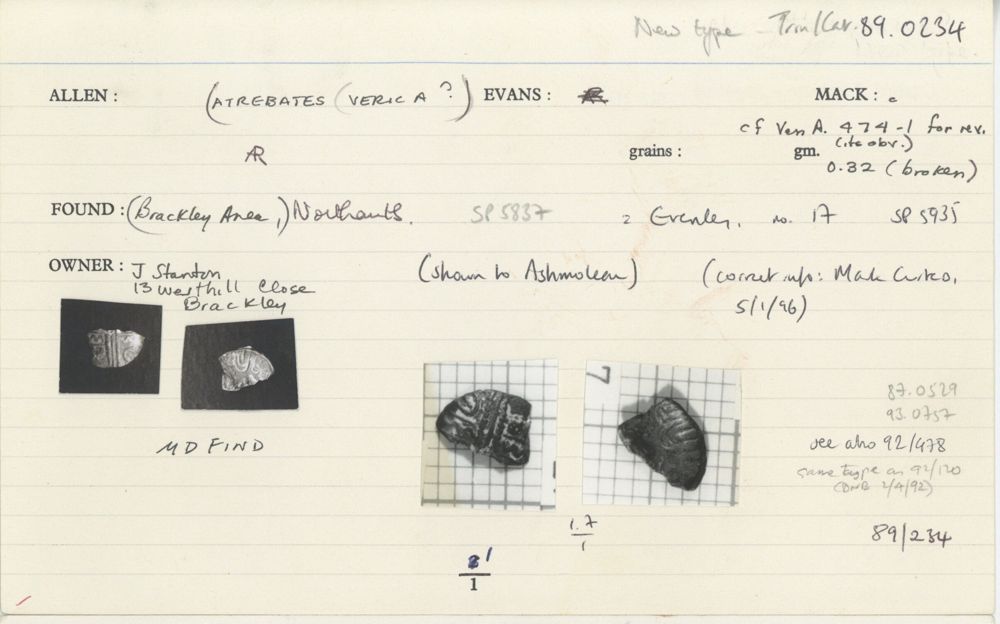 New type - Trin/Cat. 89.0234
ALLEN : (ATREBATES (VERICA ?) EVANS : MACK : c
cf Van A. 474-1 for rev.
(ite obv.)
AR grains : gm. 0.32 (broken)
FOUND : (Brackley Area,) Northants. SP 5837 = Evenley, no. 17 SP 5935
OWNER : J Stanton (shown to Ashmolean) (correct info: Mark Curteis,
13 Westhill Close 5/1/96)
Brackley
7
87.0529
93.0757
MD FIND see also 92/478
same type as 92/120
(DNB 2/4/92)
1.7/1 89/234
1/1